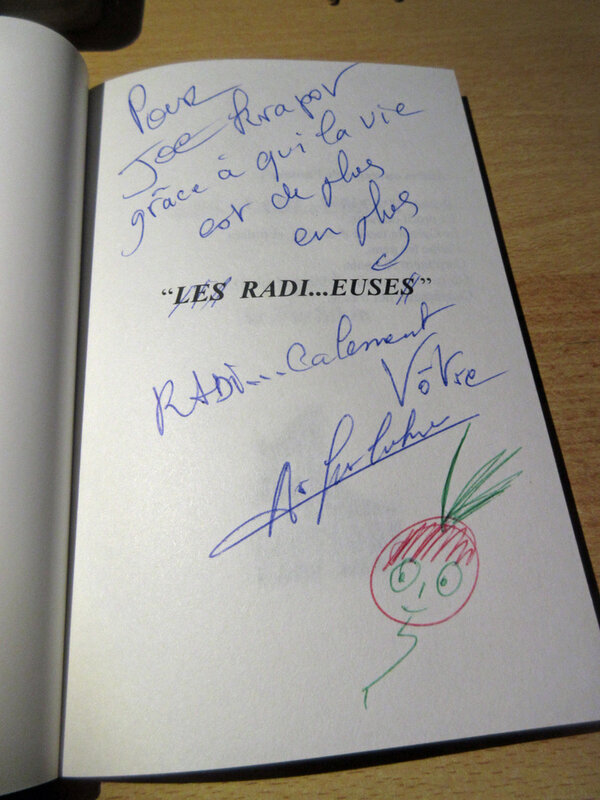 Pour
Joe Krapov
grâce à qui la vie
est de plus
en plus
“LES RADI...EUSES”
RADI...calement
Vôtre